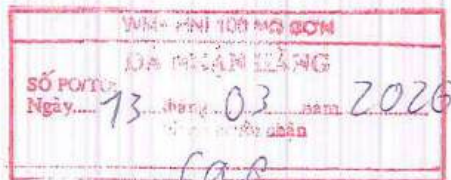 WM+ HNI 100 MG SƠN
ĐÃ NHẬN HÀNG
SỐ PO/TO:
Ngày..... 13 tháng 03 năm 2026